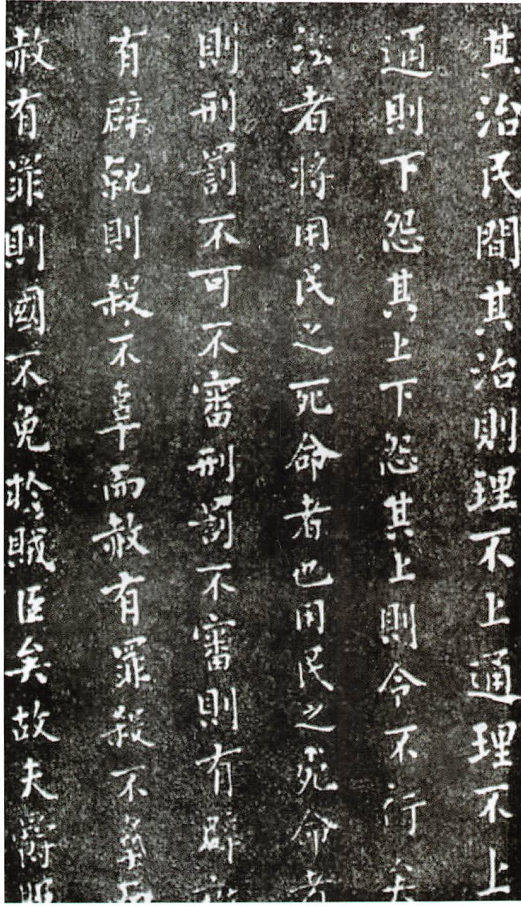 其治民間其治則理不上通理不上
通則下怨其上下怨其上則令不行矣
法者將用民之死命者也用民之死命者
則刑罰不可不審刑罰不審則有辟
有辟就則殺不辜而赦有罪殺不辜而
赦有罪則國不免於賊臣矣故夫爵